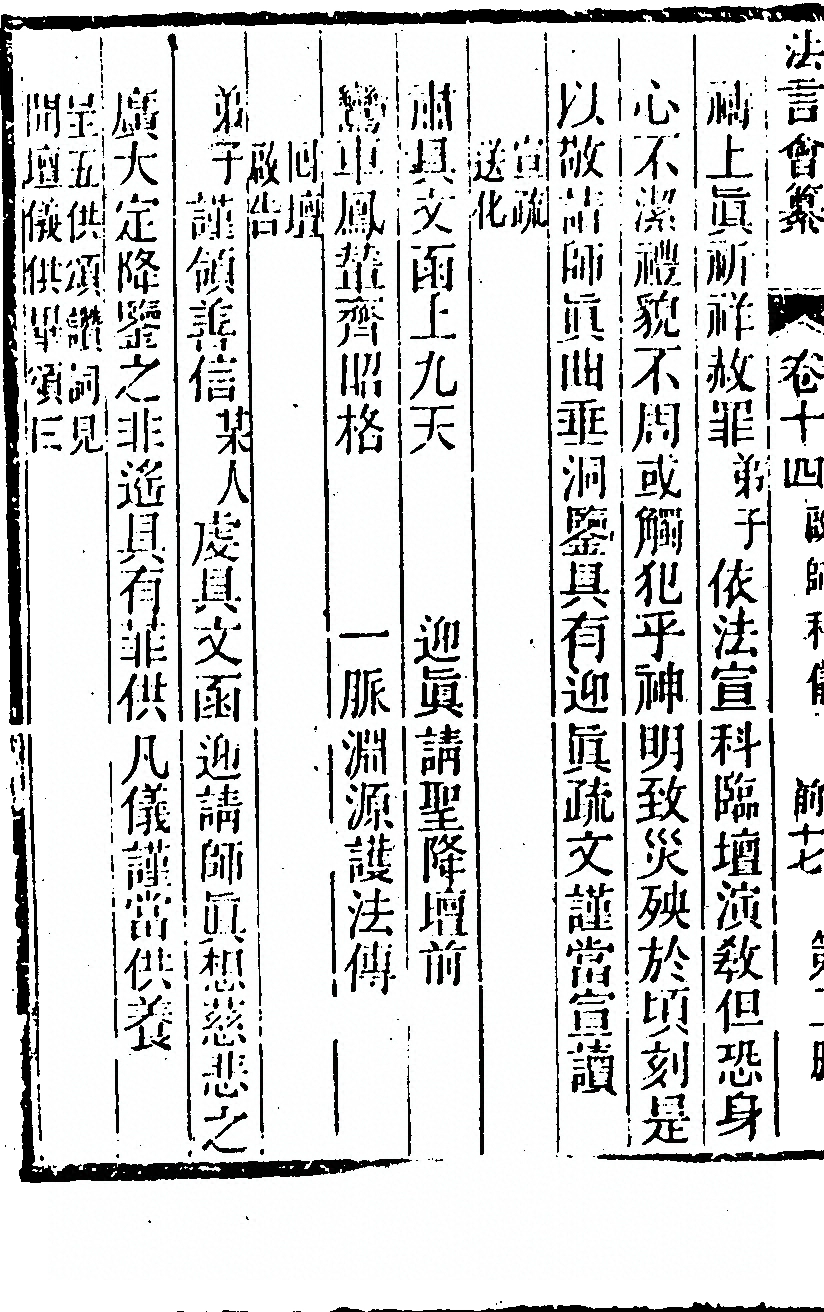 法言會纂　卷十四　師科儀　前十七　第
禱上眞祈祥赦罪弟子依法宣科臨壇演教但恐身
心不潔禮貌不周或觸犯乎神明致災殃於頃刻是
以敬請師眞曲垂洞鑒具有迎眞疏文謹當宣讀
宣疏
送化
肅具文函上九天　迎眞請聖降壇前
鸞車鳳輦齊昭格　一脈淵源護法傳
回壇
啟告
弟子謹領善信某人虔具文函迎請師眞想慈悲之
廣大定降鑒之非遙具有菲供凡儀謹當供養
呈五供頌讚詞見
開壇儀供畢頌曰